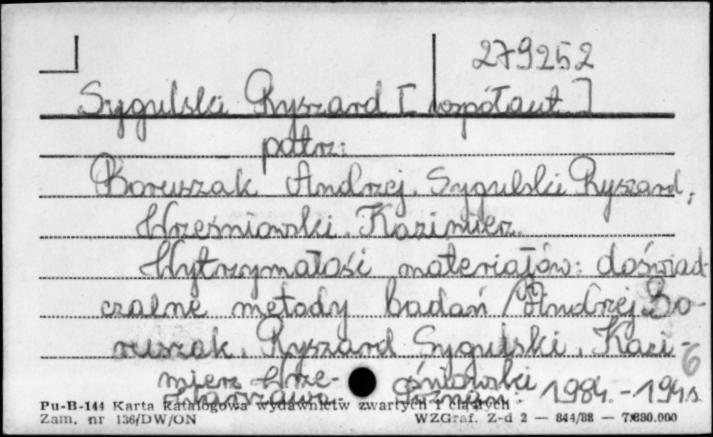 279252
Sygulski Ryszard [współaut.]
patrz:
Boruszak Andrzej, Sygulski Ryszard,
Wrześniowski Kazimierz
Wytrzymałość materiałów: doświad-
czalne metody badań / Andrzej Bo-
ruszak, Ryszard Sygulski, Kazi-
mierz Wrze- śniowski
Warszawa- Poznań: 1984.-194s
6
Pu-B-144 Karta katalogowa wydawnictw zwartych i ciągłych
Zam. nr 136/DW/ON WZGraf. Z-d 2 — 844/88 — 7.830.000